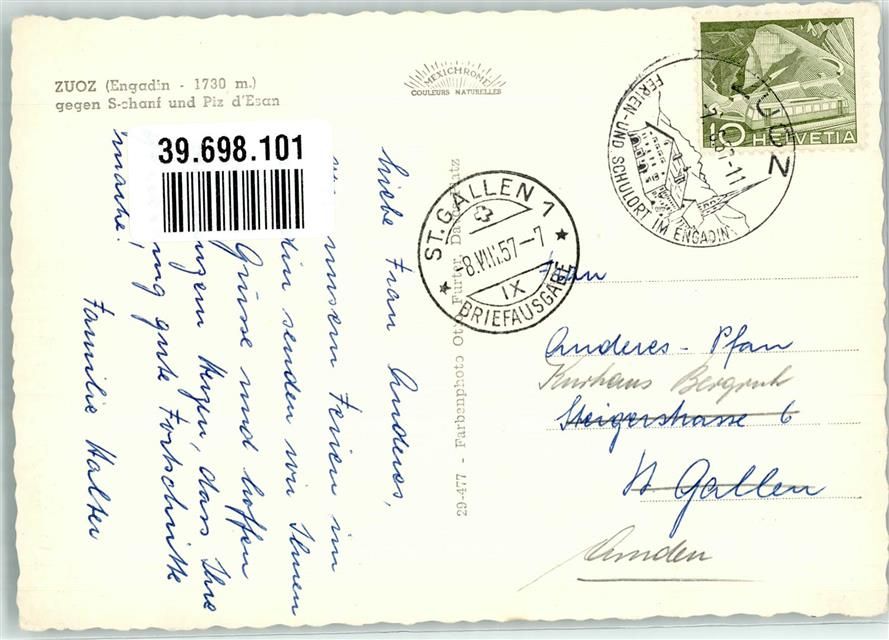 ZUOZ (Engadin - 1730 m.)
gegen S-chanf und Piz d'Esan
MEXICHROME
COULEURS NATURELLES
39.698.101
HELVETIA
10
ZUOZ
FERIEN- UND SCHULORT IM ENGADIN
ST. GALLEN 1
-8.VIII.57-7
IX
BRIEFAUSGABE
29-477 - Farbenphoto Otto Furter, Davos-Platz
Liebe Frau Anderes,
unsern Ferien im
senden wir Ihnen
Grüsse und hoffen
Herzen, dass Ihre
gute Fortschritte
mache!
Familie Halter
Frau
Anderes - Pfan
Kurhaus Bergruh
Steigerstrasse 6
St Gallen
Amden